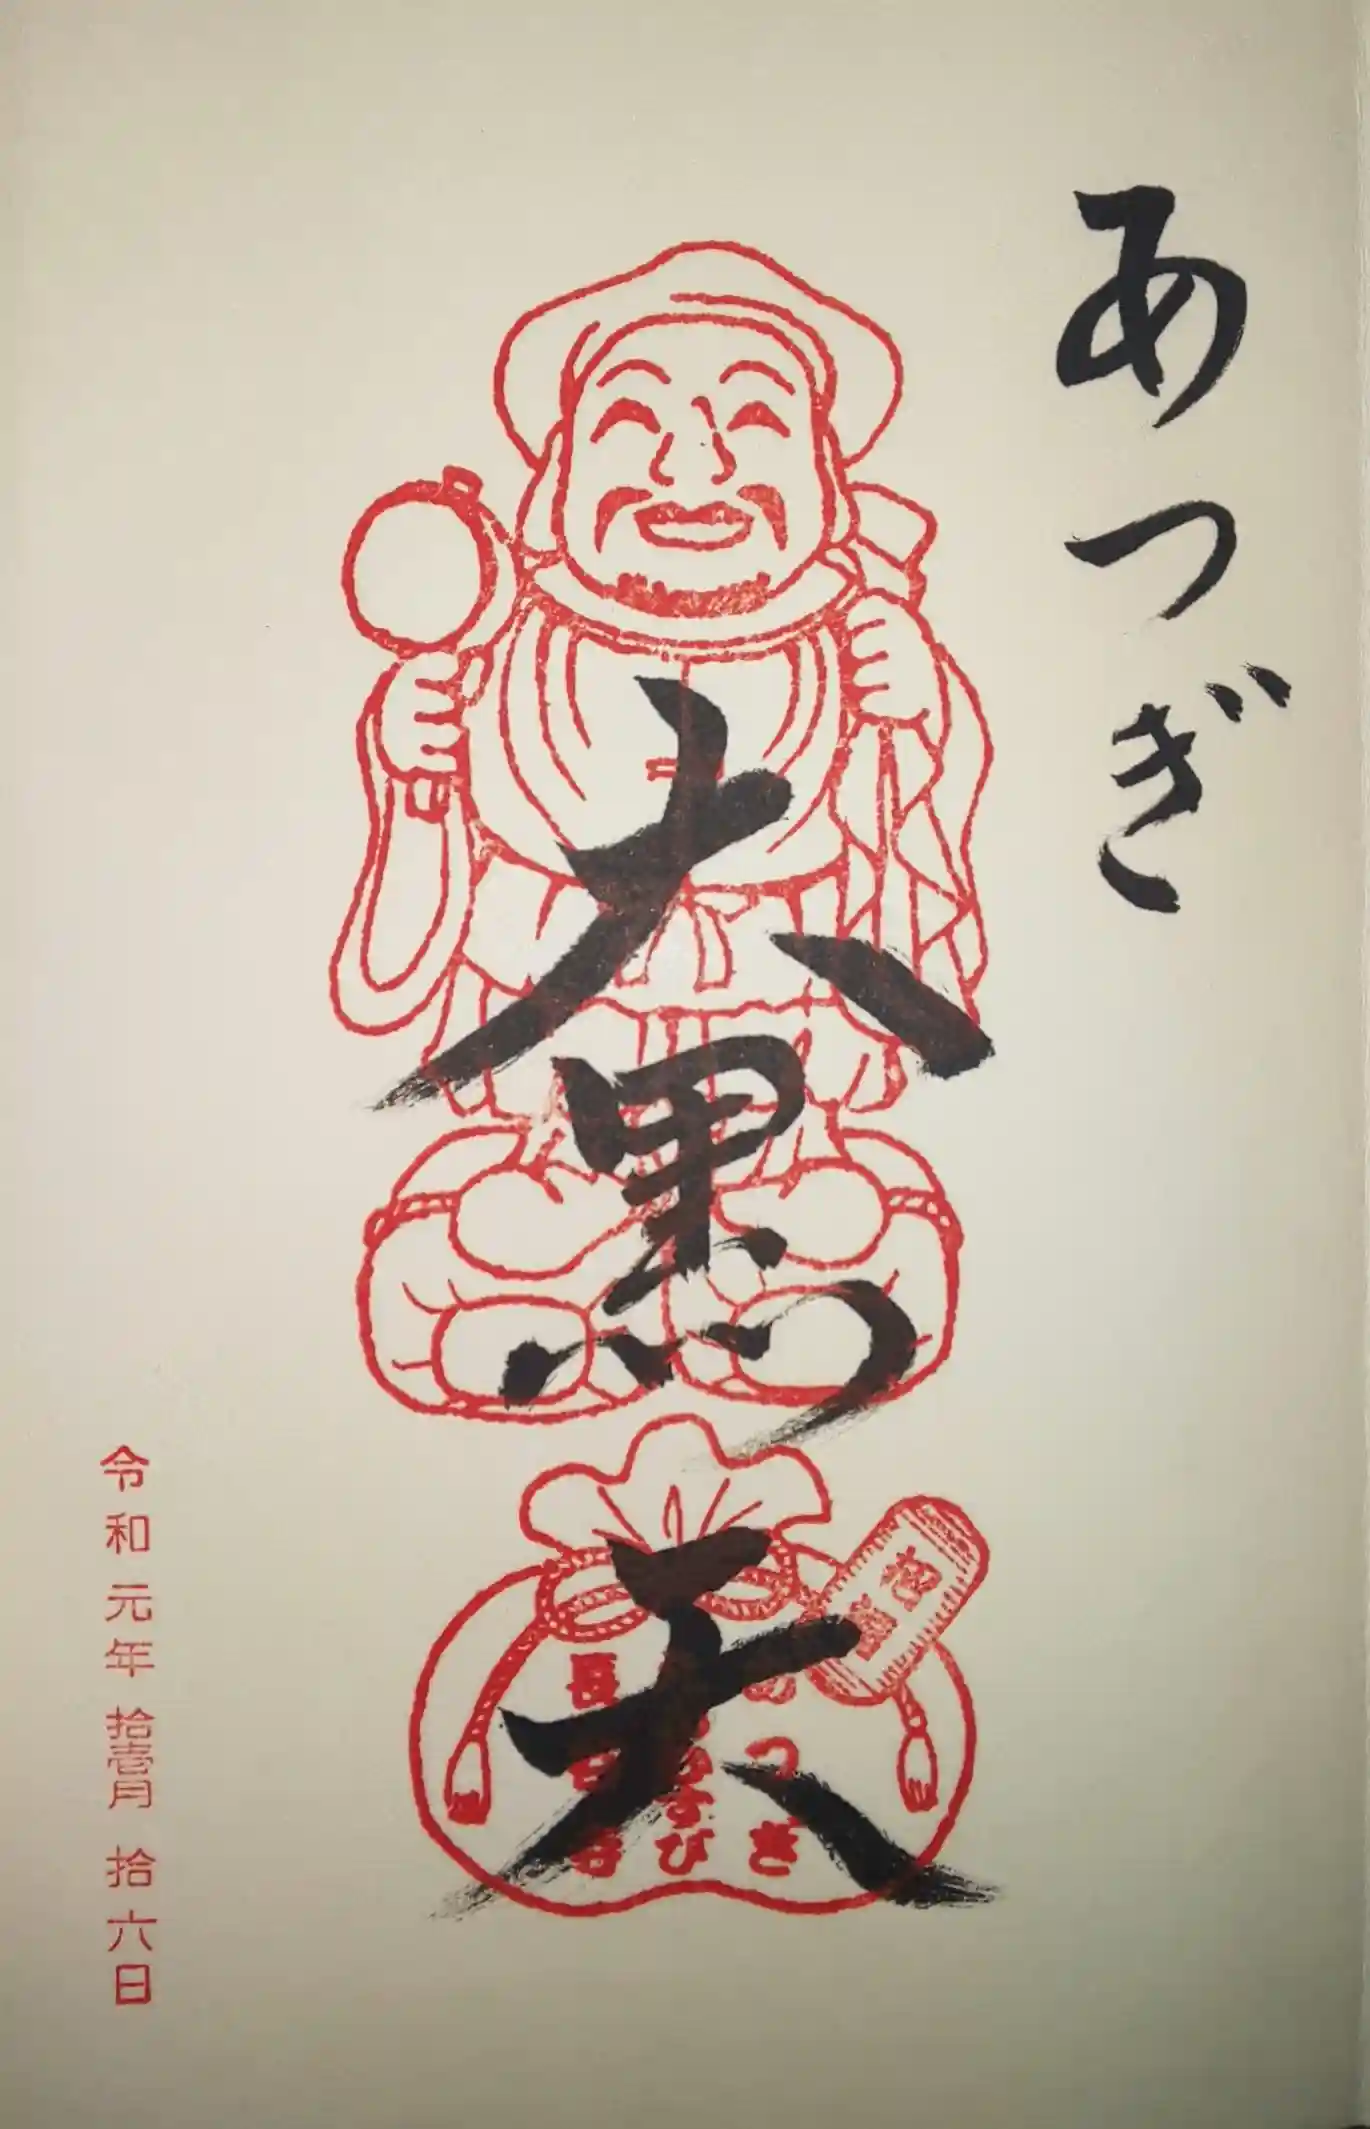 あつぎ
大黒天
あつぎ
むすび
長谷寺
令和元年拾壱月拾六日